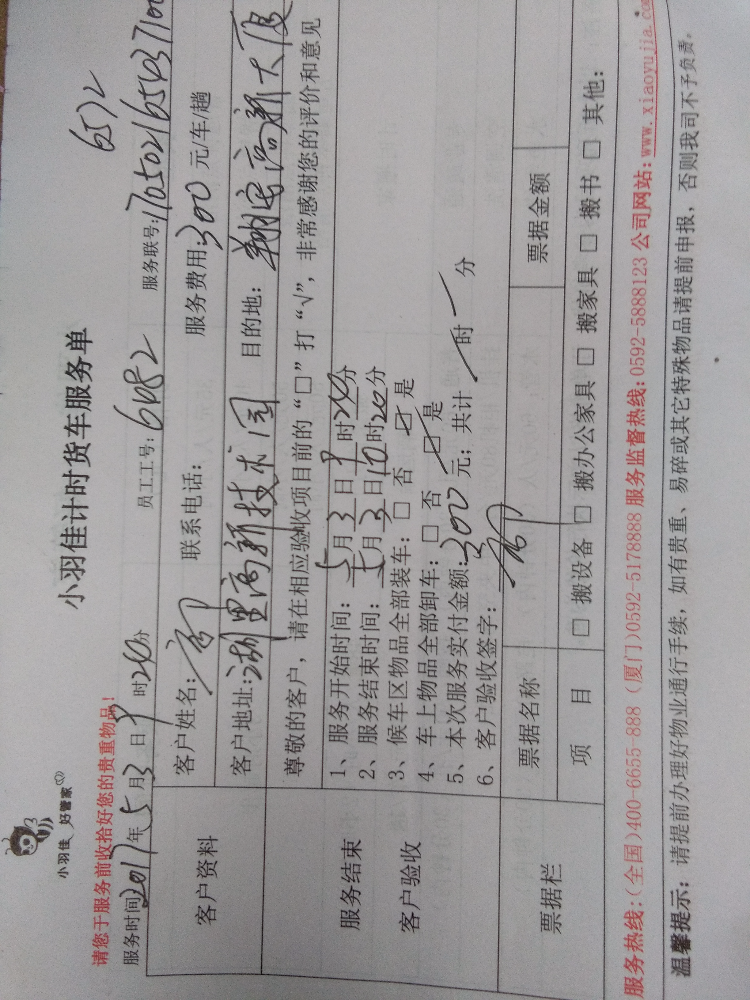 小羽佳 好管家
小羽佳计时货车服务单
6572
请您于服务前收拾好您的贵重物品!
服务时间2017年5月3日9时20分 员工工号:6082 服务联号:170502165403710
客户资料
客户姓名: 联系电话: 服务费用:300元/车/趟
客户地址:湖里高新技术园 目的地:翔安高新大厦
服务结束
客户验收
尊敬的客户,请在相应验收项目前的“□”打“√”,非常感谢您的评价和意见
1、服务开始时间:5月3日9时20分
2、服务结束时间:5月3日10时20分
3、候车区物品全部装车:□ 否 ☑ 是
4、车上物品全部卸车:□ 否 ☑ 是
5、本次服务实付金额:300元;共计 / 时 / 分
6、客户验收签字:
票据栏
票据名称 票据金额
项 目 □ 搬设备 □ 搬办公家具 □ 搬家具 □ 搬书 □ 其他:
服务热线:(全国)400-6655-888 (厦门)0592-5178888 服务监督热线:0592-5888123 公司网站:www.xiaoyujia.co
温馨提示:请提前办理好物业通行手续,如有贵重、易碎或其它特殊物品请提前申报,否则我司不予负责。